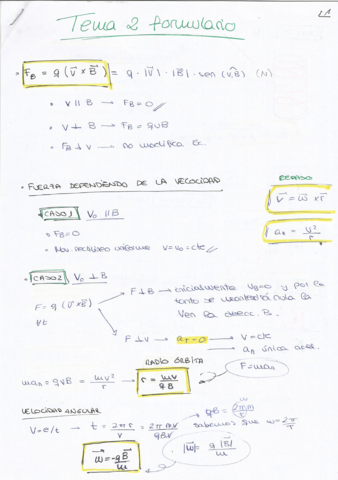 Tema 2 formulario
• F_B = q (v⃗ x B⃗) = q · |v⃗| · |B⃗| · sen (v̂,B) (N)
• V ∥ B → F_B = 0
• V ⊥ B → F_B = qvB
• F_B ⊥ V → no modifica Ec.
• FUERZA DEPENDIENDO DE LA VELOCIDAD
REPASO
v⃗ = w⃗ x r⃗
a_n = v²/r
CASO 1 V₀ ∥ B
• F_B = 0
• Mov rectilíneo uniforme V = V₀ = cte
CASO 2 V₀ ⊥ B
F ⊥ B → inicialmente V_B = 0 y por lo
tanto se mantendrá nula la
V en la direcc. B.
F = q (v⃗ x B⃗)
∀t
F ⊥ V → a_t = 0 → V = cte
a_n única acel.
RADIO ÓRBITA
F = m a_n
m a_n = qvB = mv²/r → r = mv/qB
VELOCIDAD ANGULAR
V = e/t → t = 2πr/v = 2πmv/qBv
qB = 2πm/t
sabemos que w = 2π/t
w⃗ = -qB⃗/m
|w⃗| = q|B⃗|/m